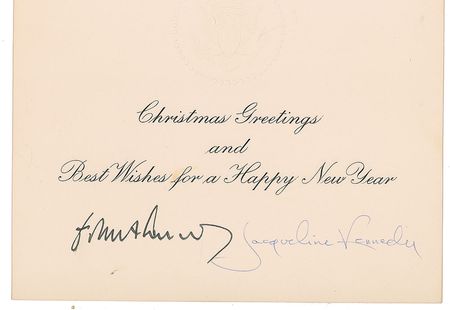 Christmas Greetings
and
Best Wishes for a Happy New Year
Jacqueline Kennedy